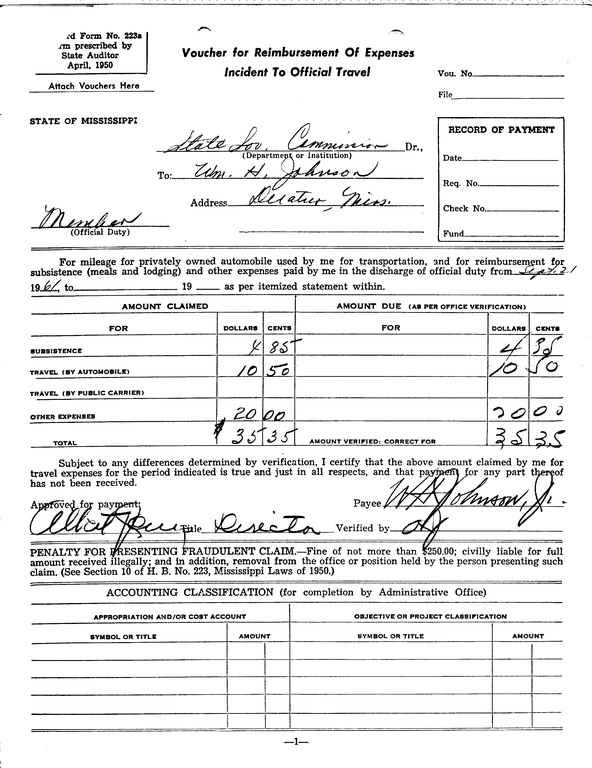 rd Form No. 223a
rm prescribed by
State Auditor
April, 1950
Attach Vouchers Here
Voucher for Reimbursement Of Expenses
Incident To Official Travel
Vou. No.
File
STATE OF MISSISSIPPI
RECORD OF PAYMENT
Date
Req. No.
Check No.
Fund
State Sov. Commission Dr.,
(Department or Institution)
To: Wm. H. Johnson
Address Decatur, Miss.
Member
(Official Duty)
For mileage for privately owned automobile used by me for transportation, and for reimbursement for
subsistence (meals and lodging) and other expenses paid by me in the discharge of official duty from Sept. 21
1961, to 19 as per itemized statement within.
AMOUNT CLAIMED AMOUNT DUE (AS PER OFFICE VERIFICATION)
FOR DOLLARS CENTS FOR DOLLARS CENTS
SUBSISTENCE 4 85 4 35
TRAVEL (BY AUTOMOBILE) 10 50 10 50
TRAVEL (BY PUBLIC CARRIER)
OTHER EXPENSES 20 00 20 00
TOTAL $ 35 35 AMOUNT VERIFIED: CORRECT FOR 35 35
Subject to any differences determined by verification, I certify that the above amount claimed by me for
travel expenses for the period indicated is true and just in all respects, and that payment for any part thereof
has not been received.
Approved for payment: Payee W H Johnson, Jr.
Albert Jones Title Director Verified by
PENALTY FOR PRESENTING FRAUDULENT CLAIM.—Fine of not more than $250.00; civilly liable for full
amount received illegally; and in addition, removal from the office or position held by the person presenting such
claim. (See Section 10 of H. B. No. 223, Mississippi Laws of 1950.)
ACCOUNTING CLASSIFICATION (for completion by Administrative Office)
APPROPRIATION AND/OR COST ACCOUNT OBJECTIVE OR PROJECT CLASSIFICATION
SYMBOL OR TITLE AMOUNT SYMBOL OR TITLE AMOUNT
—1—